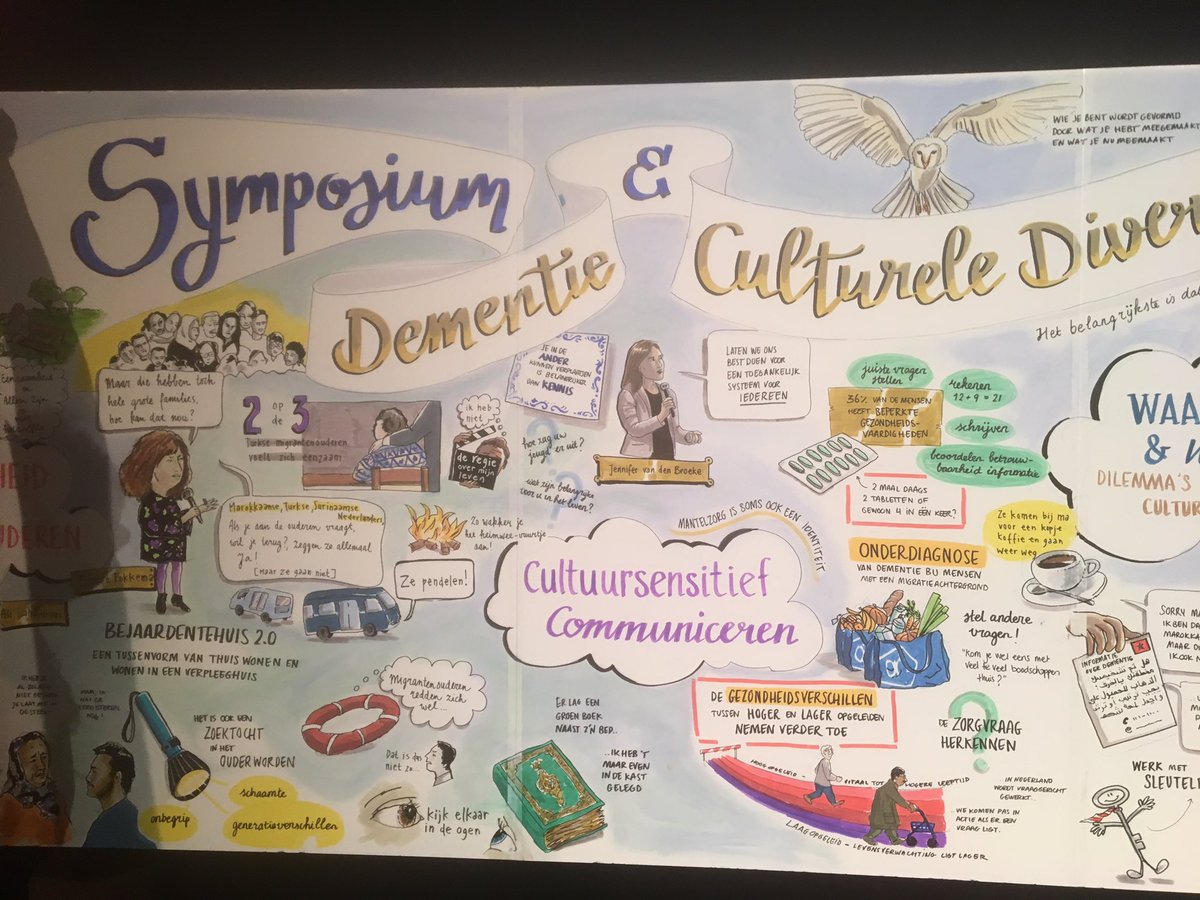 Symposium
&
Dementie
Culturele Diver
WIE JE BENT WORDT GEVORMD
DOOR WAT JE HEBT MEEGEMAAKT
EN WAT JE NU MEEMAAKT
Het belangrijkste is dat
Maar die hebben toch
hele grote families,
hoe kan dat nou?
2 op de 3
Turkse migrantenouderen
voelt zich eenzaam
ik heb
niet
de regie
over mijn
leven
JE IN DE
ANDER
KUNNEN VERPLAATSEN
IS BELANGRIJKER
DAN KENNIS
LATEN WE ONS
BEST DOEN VOOR
EEN TOEGANKELIJK
SYSTEEM VOOR
IEDEREEN
Jennifer van den Broeke
hoe zag uw
jeugd er uit?
wat zijn belangrijke
voor u in het leven?
juiste vragen
stellen
rekenen
12 + 9 = 21
schrijven
beoordelen betrouw-
baarheid informatie
36% VAN DE MENSEN
HEEFT BEPERKTE
GEZONDHEIDS-
VAARDIGHEDEN
2 MAAL DAAGS
2 TABLETTEN OF
GEWOON 4 IN ÉÉN KEER?
WAA
&
DILEMMA'S
CULTU
HEID
UDEREN
Marokkaanse, Turkse Surinaamse
Nederlanders,
Als je aan de ouderen vraagt,
wil je terug?, zeggen ze allemaal
Ja!
[Maar ze gaan niet]
Zo wakker je
het heimwee-vuurtje
aan!
Ze pendelen!
Fokkema
MANTELZORG IS SOMS OOK EEN IDENTITEIT
Cultuursensitief
Communiceren
ONDERDIAGNOSE
VAN DEMENTIE BIJ MENSEN
MET EEN MIGRATIEACHTERGROND
Ze komen bij ma
voor een kopje
koffie en gaan
weer weg
Stel andere
vragen!
"Kom je wel eens met
veel te veel boodschappen
thuis?"
SORRY MA
IK BEN DA
MAROKKA
MAAR D
IK OOK
INFORMATIE
OVER DEMENTIE
BEJAARDENTEHUIS 2.0
EEN TUSSENVORM VAN THUIS WONEN EN
WONEN IN EEN VERPLEEGHUIS
HET IS OOK EEN
ZOEKTOCHT
IN HET
OUDER WORDEN
schaamte
onbegrip
generatieverschillen
Migrantenouderen
redden zich
wel...
Dat is
niet zo...
kijk elkaar
in de ogen
ER LAG EEN
GROEN BOEK
NAAST Z'N BED..
..IK HEB 'T
MAAR EVEN
IN DE KAST
GELEGD
DE GEZONDHEIDSVERSCHILLEN
TUSSEN HOGER EN LAGER OPGELEIDEN
NEMEN VERDER TOE
HOOG OPGELEID - VITAAL TOT HOGERE LEEFTIJD
LAAGOPGELEID - LEVENSVERWACHTING LIGT LAGER
DE ZORGVRAAG
HERKENNEN
IN NEDERLAND
WORDT VRAAGGERICHT
GEWERKT..
..WE KOMEN PAS IN
ACTIE ALS ER EEN
VRAAG LIGT.
WERK MET
SLEUTEL